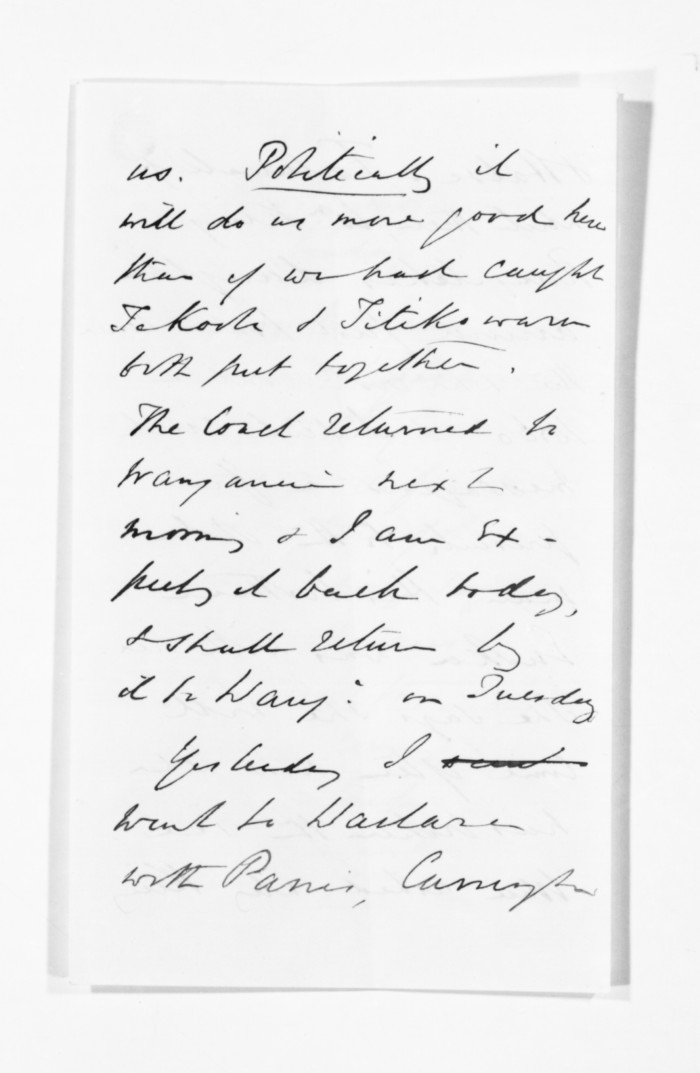 us. Politically it
will do us more good here
than if we had caught
Te Kooti & Titiko warn
both put together.
The Coach returned to
Wanganui next
morning & I am ex-
pectg it back today,
& shall return by
it to Wang: on Tuesday
Yesterday I sent
went to Waitara
with Parris, Carrington